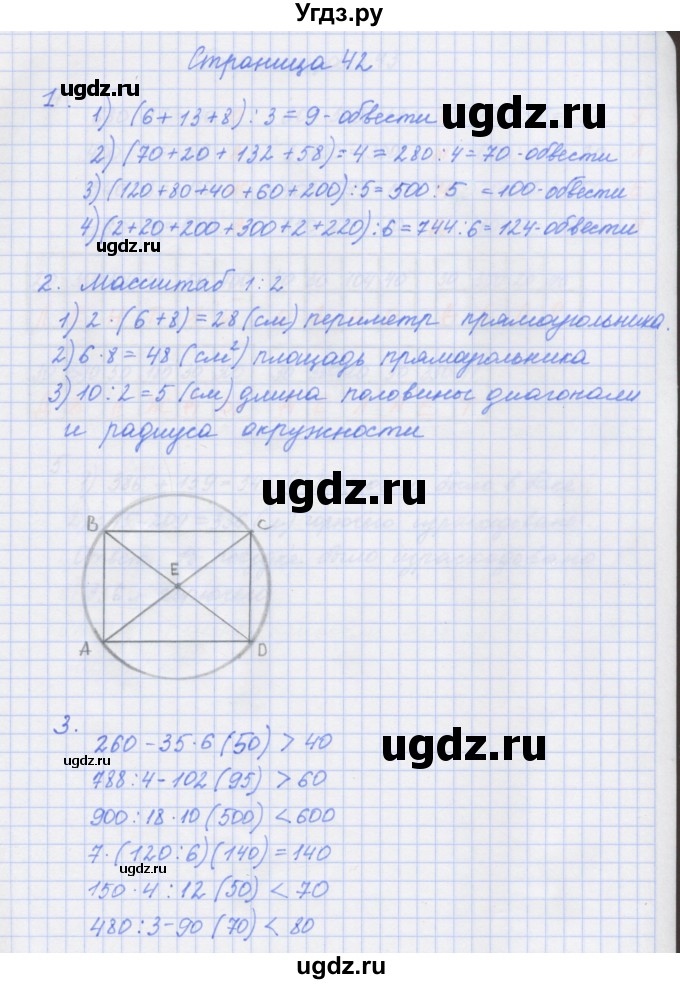 Угдз.ру
Страница 42
ugdz.ru
1. 1) (6+13+8):3=9-обвести
ugdz.ru
2) (70+20+132+58)=4=280:4=70-обвести
3) (120+80+40+60+200):5=500:5 =100-обвести
4) (2+20+200+300+2+220):6=744:6=124-обвести
ugdz.ru
2. Масштаб 1:2
ugdz.ru
1) 2·(6+8)=28(см) периметр прямоугольника.
2) 6·8=48(см²) площадь прямоугольника
3) 10:2=5(см) длина половины диагонали
и радиуса окружности
ugdz.ru
B C
E
A D
3.
260-35·6(50)>40
ugdz.ru
ugdz.ru
788:4-102(95)>60
900:18·10(500)<600
7·(120:6)(140)=140
ugdz.ru
150·4:12(50)<70
480:3-90(70)<80
ugdz.ru